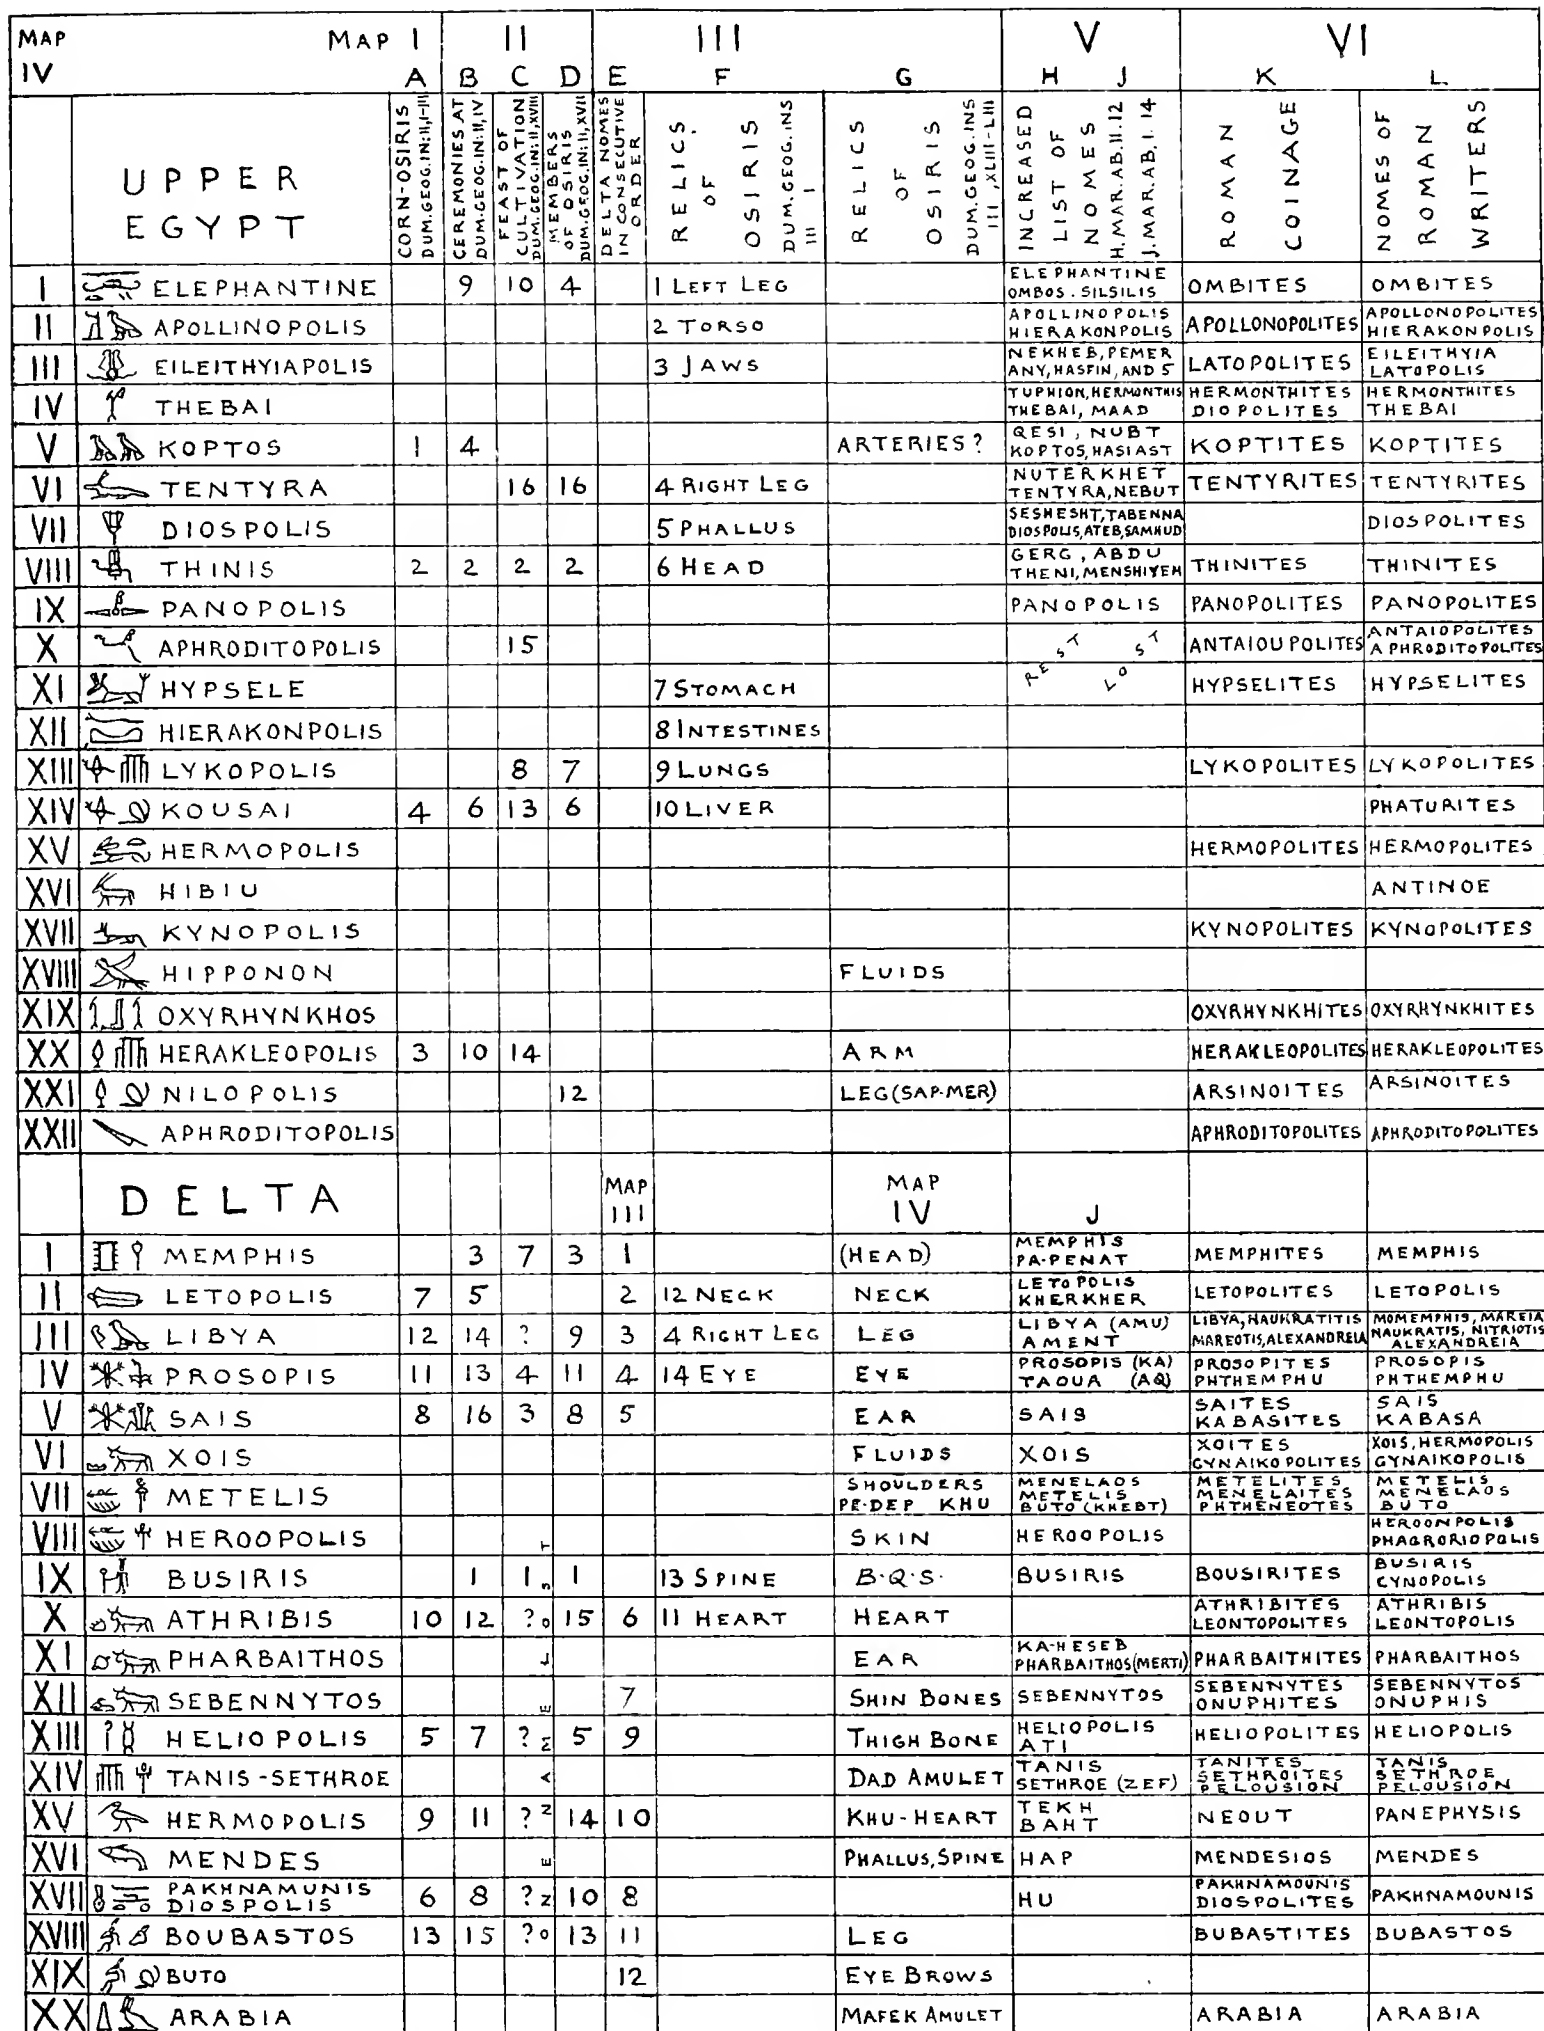 MAP IV MAP I II III V VI
A B C D E F G H J K L
UPPER EGYPT
CORN-OSIRIS DUM.GEOG.IN:II,I-III
CEREMONIES AT DUM.GEOG.IN:II,IV
FEAST OF CULTIVATION DUM.GEOG.IN:II,XVIII
MEMBERS OF OSIRIS DUM.GEOG.IN:II,XVII
DELTA NOMES IN CONSECUTIVE ORDER
RELICS OF OSIRIS DUM.GEOG.INS III I
RELICS OF OSIRIS DUM.GEOG.INS III, XLIII-LIII
INCREASED LIST OF NOMES H.MAR.AB.II.12 J.MAR.AB.I.14
ROMAN COINAGE
NOMES OF ROMAN WRITERS
I ELEPHANTINE 9 10 4 1 LEFT LEG ELEPHANTINE OMBOS. SILSILIS OMBITES OMBITES
II APOLLINOPOLIS 2 TORSO APOLLINOPOLIS HIERAKONPOLIS APOLLONOPOLITES APOLLONOPOLITES HIERAKONPOLIS
III EILEITHYIAPOLIS 3 JAWS NEKHEB, PEMER ANY, HASFIN, AND 5 LATOPOLITES EILEITHYIA LATOPOLIS
IV THEBAI TUPHION, HERMONTHIS THEBAI, MAAD HERMONTHITES DIOPOLITES HERMONTHITES THEBAI
V KOPTOS 1 4 ARTERIES? QESI, NUBT KOPTOS, HASIAST KOPTITES KOPTITES
VI TENTYRA 16 16 4 RIGHT LEG NUTERKHET TENTYRA, NEBUT TENTYRITES TENTYRITES
VII DIOSPOLIS 5 PHALLUS SESHESHT, TABENNA DIOSPOLIS, ATEB, SAMHUD DIOSPOLITES
VIII THINIS 2 2 2 2 6 HEAD GERG, ABDU THENI, MENSHIYEH THINITES THINITES
IX PANOPOLIS PANOPOLIS PANOPOLITES PANOPOLITES
X APHRODITOPOLIS 15 REST LOST ANTAIOUPOLITES ANTAIOPOLITES APHRODITOPOLITES
XI HYPSELE 7 STOMACH HYPSELITES HYPSELITES
XII HIERAKONPOLIS 8 INTESTINES
XIII LYKOPOLIS 8 7 9 LUNGS LYKOPOLITES LYKOPOLITES
XIV KOUSAI 4 6 13 6 10 LIVER PHATURITES
XV HERMOPOLIS HERMOPOLITES HERMOPOLITES
XVI HIBIU ANTINOE
XVII KYNOPOLIS KYNOPOLITES KYNOPOLITES
XVIII HIPPONON FLUIDS
XIX OXYRHYNKHOS OXYRHYNKHITES OXYRHYNKHITES
XX HERAKLEOPOLIS 3 10 14 ARM HERAKLEOPOLITES HERAKLEOPOLITES
XXI NILOPOLIS 12 LEG (SAP-MER) ARSINOITES ARSINOITES
XXII APHRODITOPOLIS APHRODITOPOLITES APHRODITOPOLITES
DELTA MAP III MAP IV J
I MEMPHIS 3 7 3 1 (HEAD) MEMPHIS PA-PENAT MEMPHITES MEMPHIS
II LETOPOLIS 7 5 2 12 NECK NECK LETOPOLIS KHERKHER LETOPOLITES LETOPOLIS
III LIBYA 12 14 ? 9 3 4 RIGHT LEG LEG LIBYA (AMU) AMENT LIBYA, NAUKRATITIS MAREOTIS, ALEXANDREIA MOMEMPHIS, MAREIA NAUKRATIS, NITRIOTIS ALEXANDREIA
IV PROSOPIS 11 13 4 11 4 14 EYE EYE PROSOPIS (KA) TAOUA (AQ) PROSOPITES PHTHEMPHU PROSOPIS PHTHEMPHU
V SAIS 8 16 3 8 5 EAR SAIS SAITES KABASITES SAIS KABASA
VI XOIS FLUIDS XOIS XOITES GYNAIKOPOLITES XOIS, HERMOPOLIS GYNAIKOPOLIS
VII METELIS SHOULDERS PE-DEP KHU MENELAOS METELIS BUTO (KHEBT) METELITES MENELAITES PHTHENEOTES METELIS MENELAOS BUTO
VIII HEROOPOLIS SKIN HEROOPOLIS HEROONPOLIS PHAGRORIOPOLIS
IX BUSIRIS 1 1 1 13 SPINE B.Q.S. BUSIRIS BOUSIRITES BUSIRIS CYNOPOLIS
X ATHRIBIS 10 12 ? 15 6 11 HEART HEART ATHRIBITES LEONTOPOLITES ATHRIBIS LEONTOPOLIS
XI PHARBAITHOS EAR KA-HESEB PHARBAITHOS (MERTI) PHARBAITHITES PHARBAITHOS
XII SEBENNYTOS 7 SHIN BONES SEBENNYTOS SEBENNYTES ONUPHITES SEBENNYTOS ONUPHIS
XIII HELIOPOLIS 5 7 ? 5 9 THIGH BONE HELIOPOLIS ATI HELIOPOLITES HELIOPOLIS
XIV TANIS-SETHROE DAD AMULET TANIS SETHROE (ZEF) TANITES SETHROITES PELOUSION TANIS SETHROE PELOUSION
XV HERMOPOLIS 9 11 ? 14 10 KHU-HEART TEKH BAHT NEOUT PANEPHYSIS
XVI MENDES PHALLUS, SPINE HAP MENDESIOS MENDES
XVII PAKHNAMUNIS DIOSPOLIS 6 8 ? 10 8 HU PAKHNAMOUNIS DIOSPOLITES PAKHNAMOUNIS
XVIII BOUBASTOS 13 15 ? 13 11 LEG BUBASTITES BUBASTOS
XIX BUTO 12 EYE BROWS
XX ARABIA MAFEK AMULET ARABIA ARABIA
ONE NAME LOST